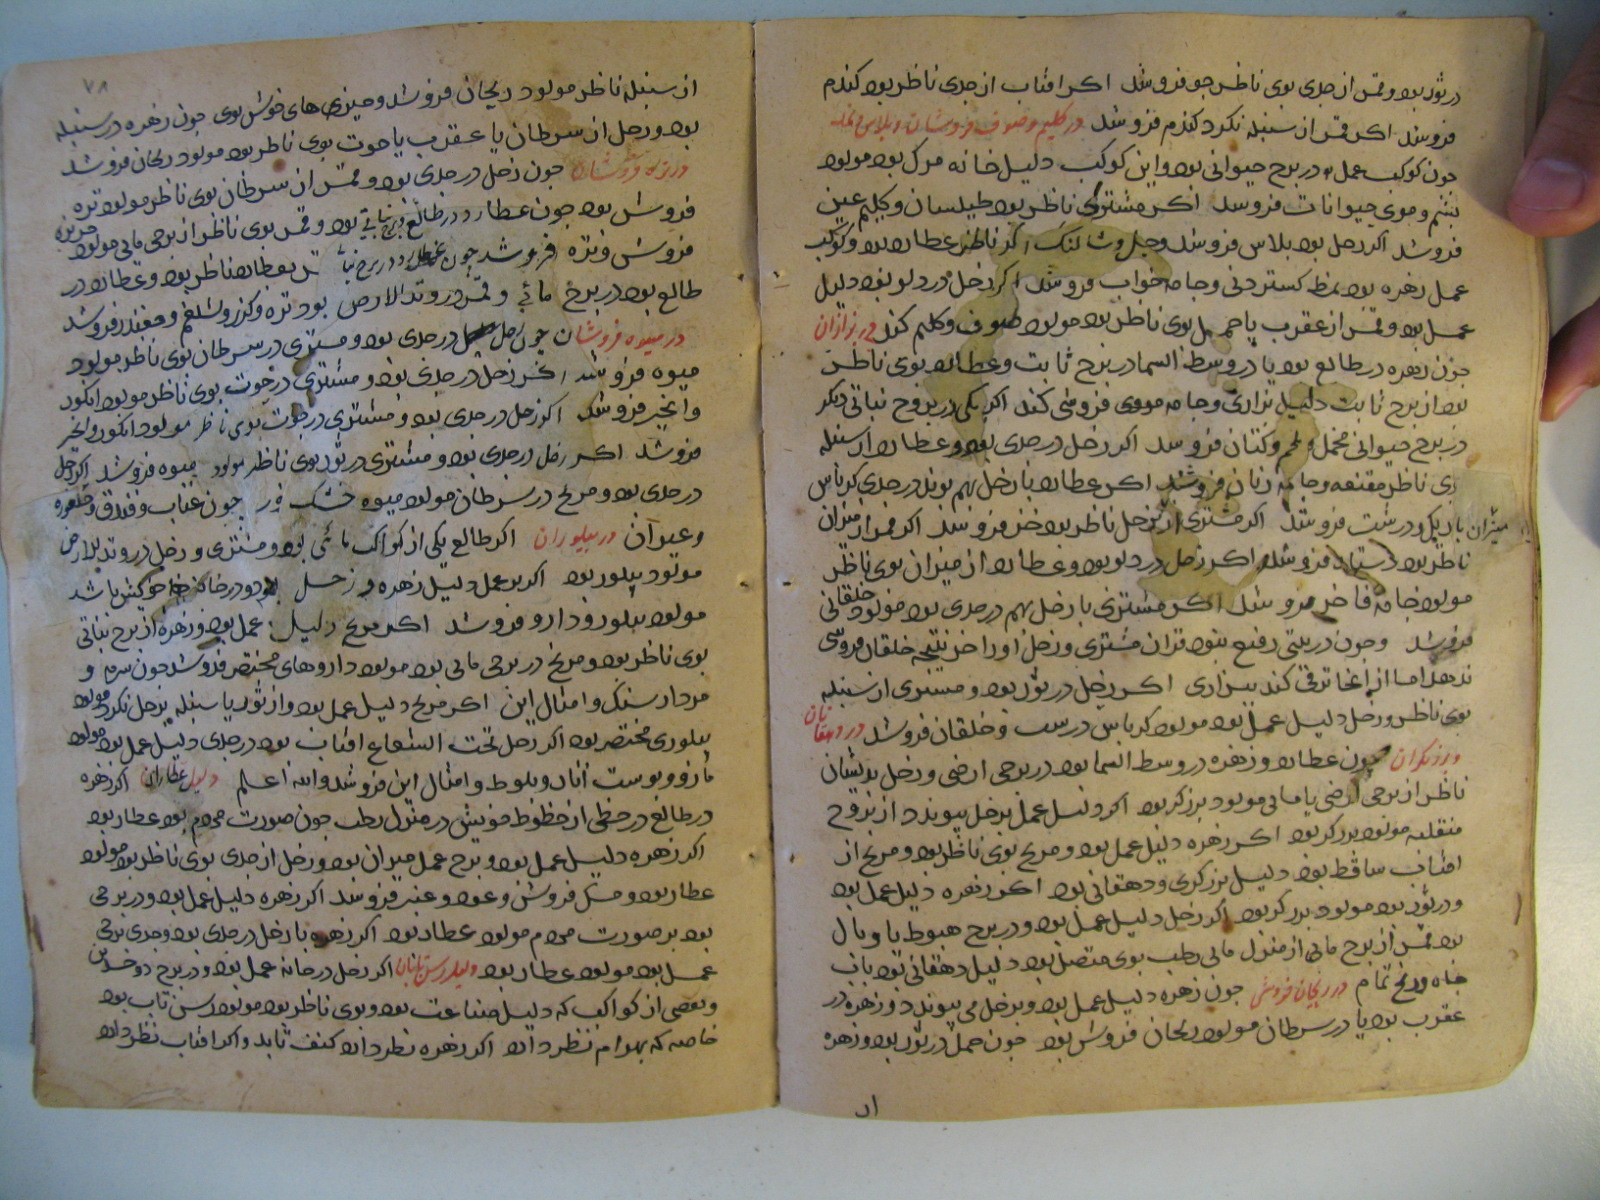 در ثور بود و قمر از جدی بوی ناظر جو فروشد اکر افتاب از جدی ناظر بود کندم
فروشد اکر قمر از سنبله نکرد کندم فروشد در کلیم و صوف فروشان و پلاس و نمد
جون کوکب عمل در برج حیوانی بود و این کوکب دلیل خانه مرک بود مولود
پشم و موی حیوانات فروشد اکر مشتری ناظر بود طیلسان و کلیم
فروشد اکر زحل بود پلاس فروشد وجل اکر ناظر عطارد بود و کوکب
عمل زهره بود نمط کستردنی و جامه خواب فروشد اکر زحل در دلو بود دلیل
عمل بود و قمر از عقرب یا حمل بوی ناظر بود مولود صوف و کلیم کند در بزازان
جون زهره در طالع بود یا در وسط السما در برج ثابت و عطارد بوی ناظر
بود از برج ثابت دلیل بزازی و جامه فروشی کند اکر یکی در بروج نباتی دیکر
در برج حیوانی مخمل و ملحم و کتان فروشد اکر زحل در جدی بود و عطارد از سنبله
ناظر مقنعه و جامه زنان فروشد اکر عطارد با زحل بهم بوند در جدی کرباس
باریک و درشت فروشد اکر مشتری از زحل ناظر بود خز فروشد اکر قمر از میزان
ناظر بود دستار فروشد اکر زحل در دلو بود و عطارد از میزان بوی ناظر
مولود جامه فاخر فروشد اکر مشتری با زحل بهم در جدی بود مولود خلقانی
فروشد وجون در بیتی رفیع بود قران مشتری و زحل او را خز نتیجه خلقان فروشی
ندهد اما از انجا ترقی کند ببزازی اکر زحل در ثور بود و مشتری از سنبله
بوی ناظر و زحل دلیل عمل بود مولود کرباس درست و خلقان فروشد در دهقانان
و برزیکران جون عطارد و زهره در وسط السما بود در برجی ارضی و زحل بدیشان
ناظر از برجی ارضی یا مایی مولود برزکر بود اکر دلیل عمل بزحل پیوندد از بروج
منقلبه مولود برزکر بود اکر زهره دلیل عمل بود و مریخ بوی ناظر بود و مریخ از
افتاب ساقط بود دلیل برزکری و دهقانی بود اکر زهره دلیل عمل بود
و در ثور بود مولود برزکر بود اکر زحل دلیل عمل بود و در برج هبوط یا وبال
بود قمر از برج مایی از منزل مایی رطب بوی متصل بود دلیل دهقانی بود باب
جاه و رنج تمام در ریحان فروشی جون زهره دلیل عمل بود و بزحل می پیوندد و زهره در
عقرب بود یا در سرطان مولود ریحان فروش بود جون حمل در ثور بود و زهره
از
۷۸
از سنبله ناظر مولود ریحان فروشد و جیزی های خوش بوی جون زهره در سنبله
بود و زحل از سرطان یا عقرب یا حوت بوی ناظر بود مولود ریحان فروشد
در تره فروشان جون زحل در جدی بود و قمر از سرطان بوی ناظر مولود تره
فروش بود جون عطارد در طالع برج نباتی بود و قمر بوی ناظر از برجی مایی مولود
فروش و تره فروشد جون عطارد در برج ناظر بود و عطارد در
طالع بود در برج مائی و قمر در وتد الارض بود تره و کزر و شلغم و جغندر فروشد
در میوه فروشان جون زحل در جدی بود و مشتری در سرطان بوی ناظر مولود
میوه فروشد اکر زحل در جدی بود و مشتری در حوت بوی ناظر مولود انکور
وانجیر فروشد اکر زحل در جدی بود و مشتری در حوت بوی ناظر مولود انکور وانجیر
فروشد اکر زحل در جدی بود و مشتری در ثور بوی ناظر مولود میوه فروشد اکر زحل
در جدی بود و مریخ در سرطان مولود میوه خشک جون عناب و فندق
وغیران در پیلوران اکر طالع یکی از کواکب مائی بود و مشتری و زحل در وتد الارض
مولود پیلور بود اکر بر عمل دلیل زهره و زحل بود در خانه خویش باشد
مولود پیلور و دارو فروشد اکر مریخ دلیل عمل بود و زهره از برج نباتی
بوی ناظر بود و مریخ در برجی مایی بود مولود داروهای مختصر فروشد جون سرمه و
مردارسنک و امثال این اکر مریخ دلیل عمل بود و از ثور یا سنبله بزحل نکرد مولود
پیلوری مختصر بود اکر زحل تحت الشعاع افتاب بود در جدی دلیل عمل بود مولود
مازو و پوست انار و بلوط و امثال این فروشد والله اعلم دلیل عطاران اکر زهره
در طالع در حظی از حظوظ خویش در منزل رطب جون صورت بود عطار بود
اکر زهره دلیل عمل بود و برج عمل میزان بود و زحل از جدی بوی ناظر بود مولود
عطار بود و مسک فروش و عود و عنبر فروشد اکر زهره دلیل عمل بود و در برجی
بود بر صورت مردم مولود عطار بود اکر زهره با زحل در جدی بود و جدی برج
عمل بود مولود عطار بود دلیل رسن تابان اکر زحل در خانه عمل بود و در برج دو جسدین
و بعضی از کواکب که دلیل صناعت بود و بوی ناظر بود مولود رسن تاب بود
خاصه که بهرام نظر دارد اکر زهره نظر دارد کنف تابد و اکر افتاب نظر دارد